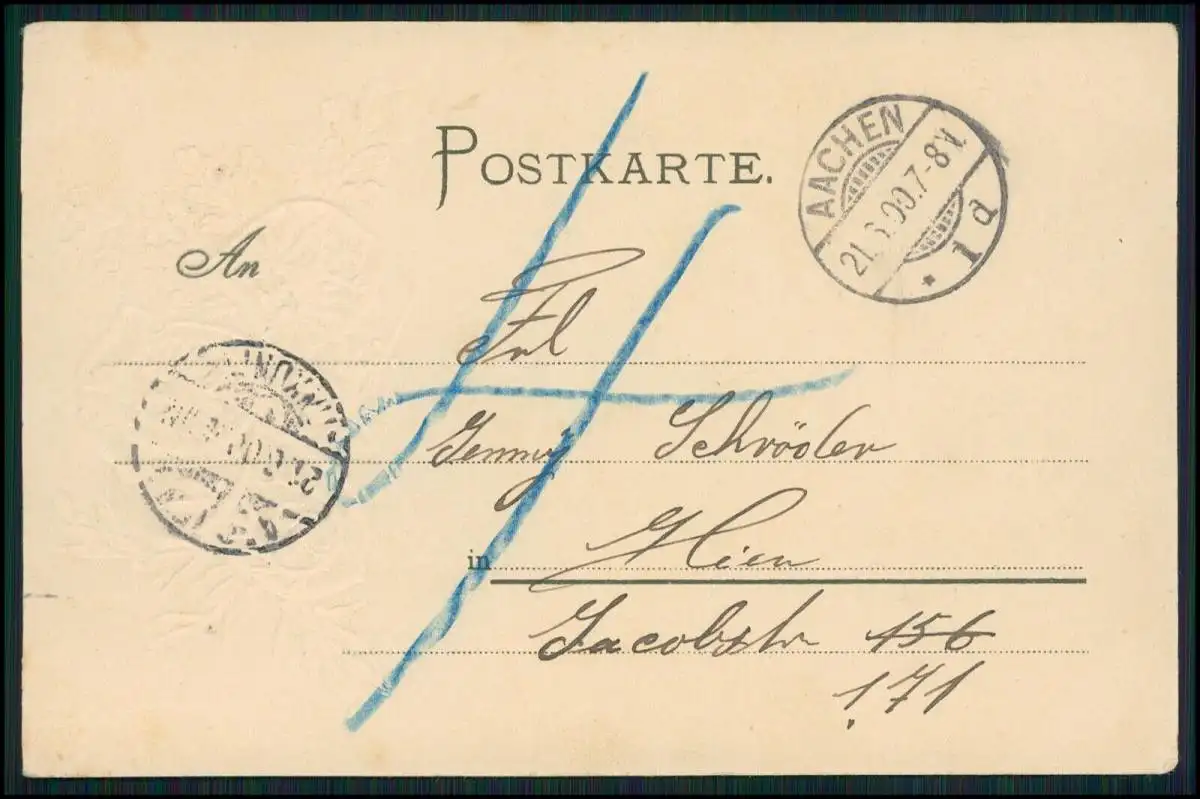 POSTKARTE.
AACHEN
21.6.00.7-8V.
* 1 d
An
Frl
Jenny Schröder
in Hier
Jacobstr 156
171